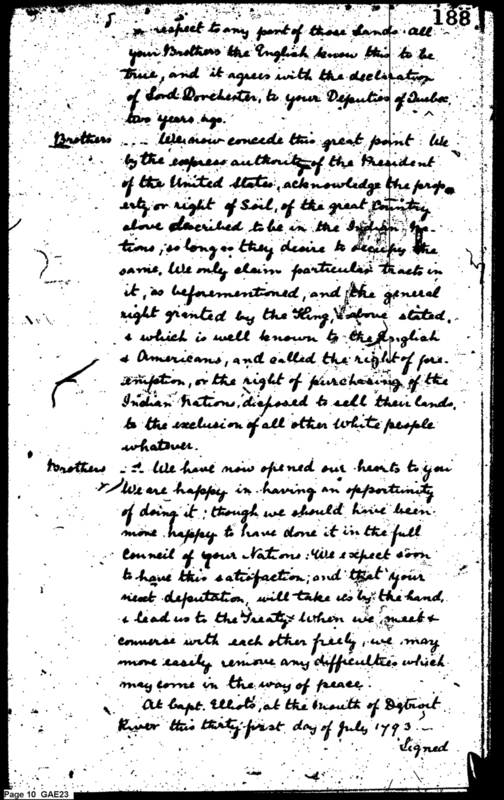 188
in respect to any part of those Lands. All
your Brothers the English know this to be
true, and it agrees with the declaration
of Lord Dorchester, to your Deputies of Quebec,
two years ago.
Brothers ... We now concede this great point. We
by the express authority of the President
of the United States, acknowledge the prop-
erty or right of Soil, of the great Country
above described to be in the Indian Na-
tions, so long as they desire to occupy the
same, We only claim particular tracts in
it, as beforementioned, and the general
right granted by the King, as above stated,
& which is well known to the English
& Americans, and called the right of pre-
emption, or the right of purchasing of the
Indian Nation, disposed to sell their lands,
to the exclusion of all other White people
whatever.
Brothers ... We have now opened our hearts to you
We are happy in having an opportunity
of doing it; though we should have been
more happy to have done it in the full
Council of your Nations: We expect soon
to have this satisfaction, and that your
next deputation, will take us by the hand,
& lead us to the Treaty. When we meet &
converse with each other freely, we may
more easily remove any difficulties which
may come in the way of peace.
At Capt. Elliots, at the mouth of Detroit
River this thirty first day of July 1793 —
Signed
Page 10 GAE23